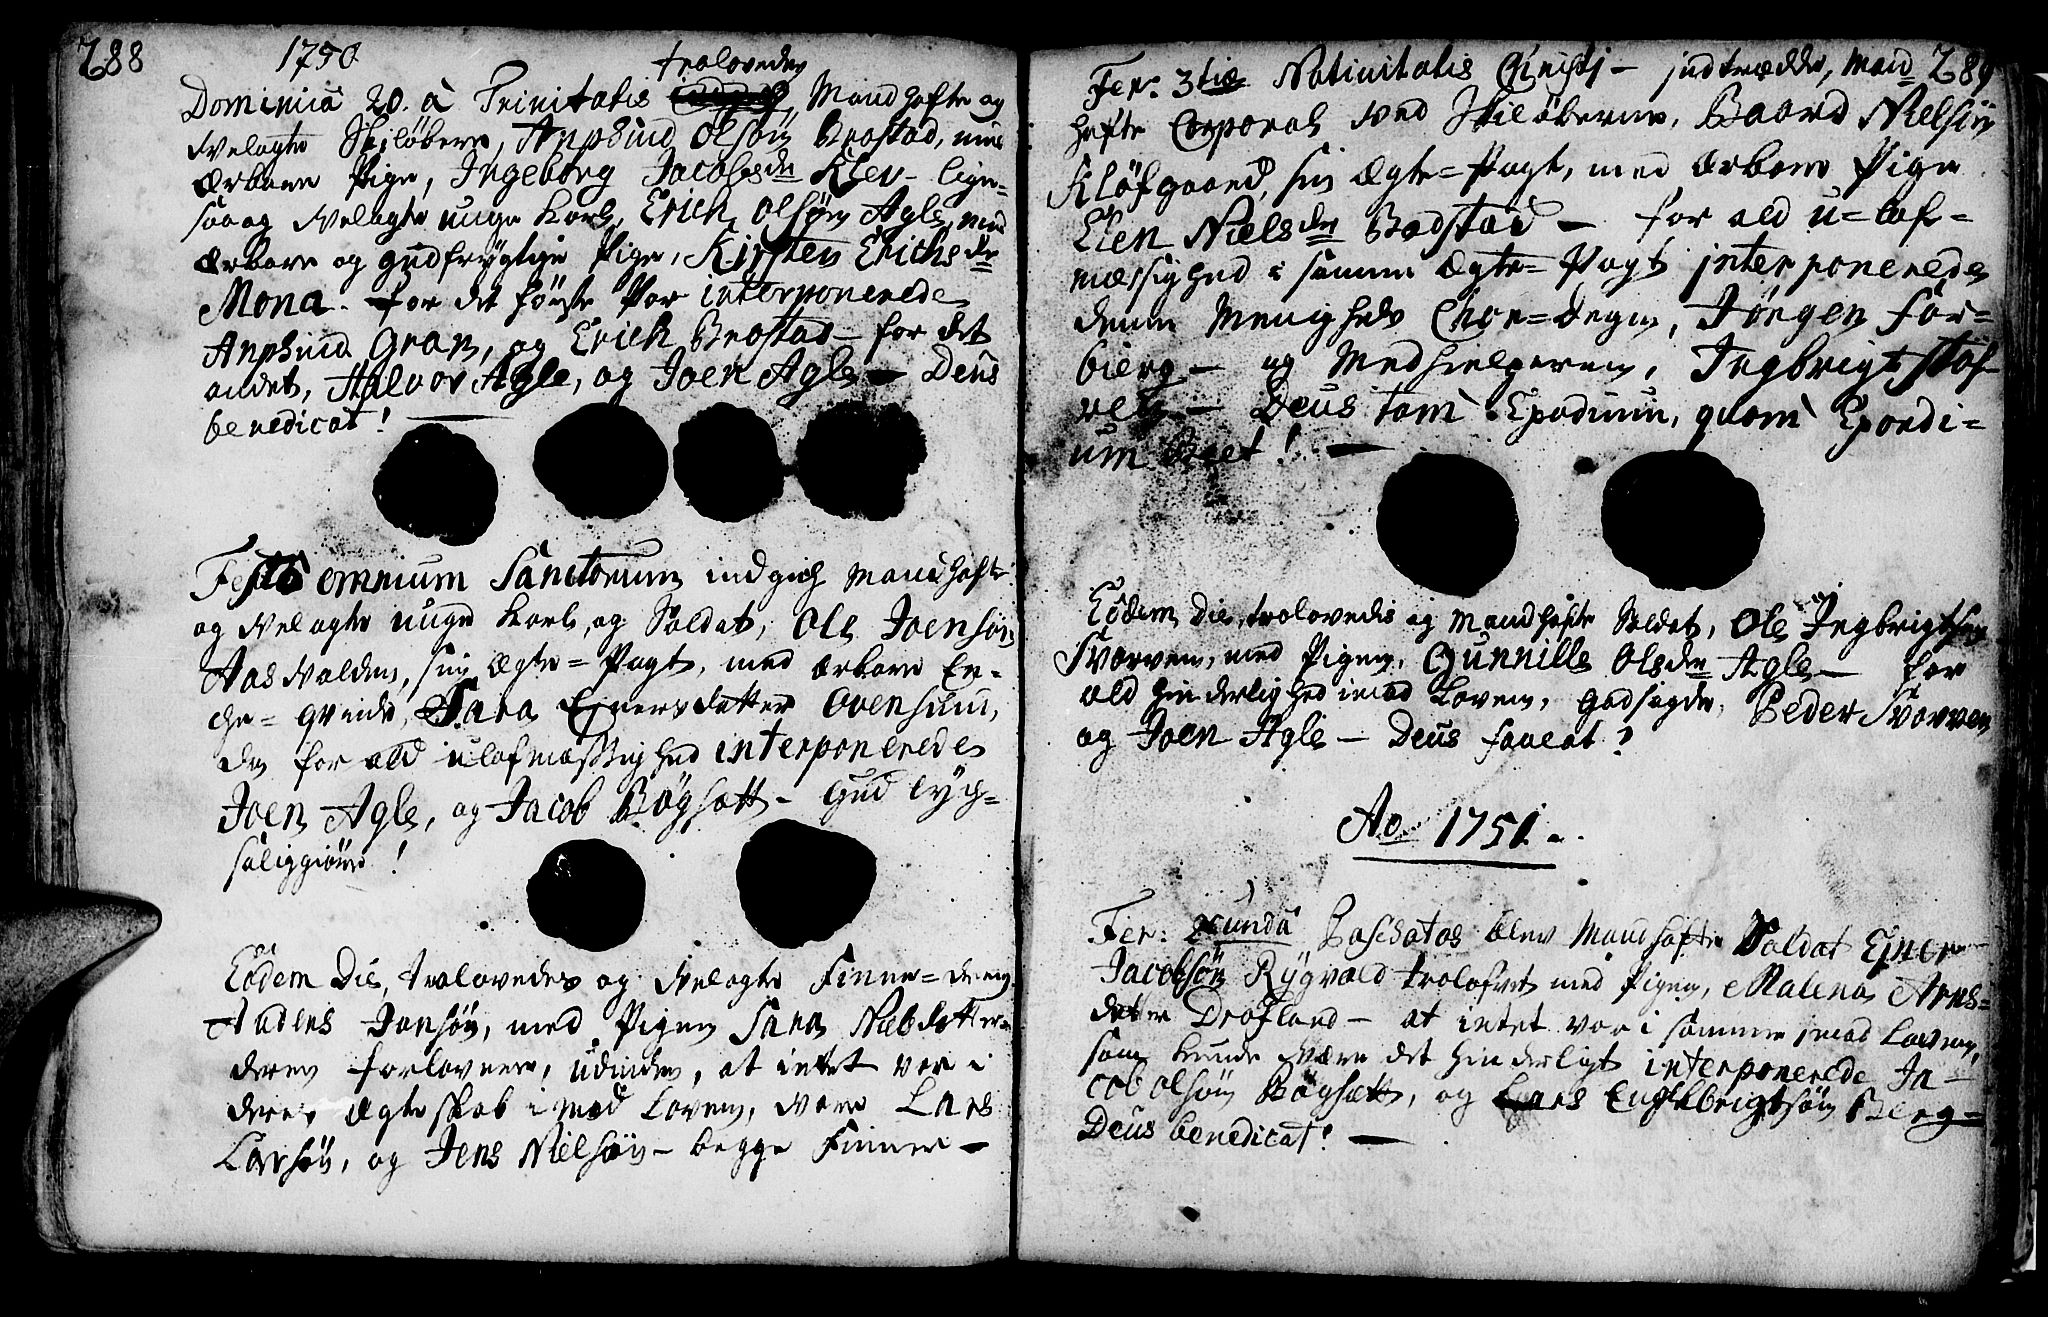 288
1750
trolovedes
Dominicâ 20. à Trinitatis Mandhafte og
Velagte Skiløbere, Anphind Olsøn Brostad, med
Ærbare Pige, Ingeborg Jacobsdr Klev- lige-
saaog Velagte unge Karl, Erich Olsøn Agle, med
Ærbare og gudfrygtige Pige, Kirsten Erichsdr
Mona. for det første Par interponerede
Anphind Gran, og Erich Brostad- for det
andet, Halvor Agle, og Joen Agle- Deus
benedicat!
Festo omnium Sanctorum indgich Mandhafte
og Velagte unge Karl, og Soldat, Ole Joensøn
Aasvolden, sin Ægte-Pagt, med ærbare En-
che-qvinde, Sara Ejnersdatter Ovensuni,
da for all ulofmæssighed interponerede
Joen Agle, og Jacob Bøgsett- Gud lych-
saliggiøre!
Eôdem Die, trolovedes og Velagte Finne-dreng
Anders Jonsøn, med Pigen Sara Nielsdatter-
deres forlovere, udinden, at intet var i
deres Ægteskab imod Loven, vare Lars
Larsøn, og Jens Nielsøn- begge Finner-
289
Fer: 3tiæ Nativitatis Christi- indtrædde, Mand-
hafte Corporal ved Skiløberne, Baard Nielsøn
Kløfgaard, sin Ægte-Pagt, med ærbare Pige
Elen Nielsdr Bodstad- for ald u-lof-
mæssighed i samme Ægte-Pagt interponerede
denne Menigheds Chor-degn, Jørgen For-
bierg- og Medhielperen, Ingbrigt Støf-
Deus tam Epodium, quam Epordi-
um
Eôdem Die, trolovedis og Mandhafte Soldat, Ole Ingbrigtsen
Svorven, med Pigen, Gunnille Olsdr Agle- for
ald hinderlighed imod Loven, godsigde, Peder Svorven
og Joen Agle- Deus faveat!
Ao 1751.
Fer: 2cundâ Paschatos blev Mandhafte Soldat Ejner
Jacobsøn Rygvold trolofvet med Pigen, Malena Arns-
datter Drofland- at intet var i samme imod Loven,
som kunde være det hinderligt interponerede Ja-
cob Olsøn Bøgsett, og Lars Englebrigtsøn Berg-
Deus benedicat!